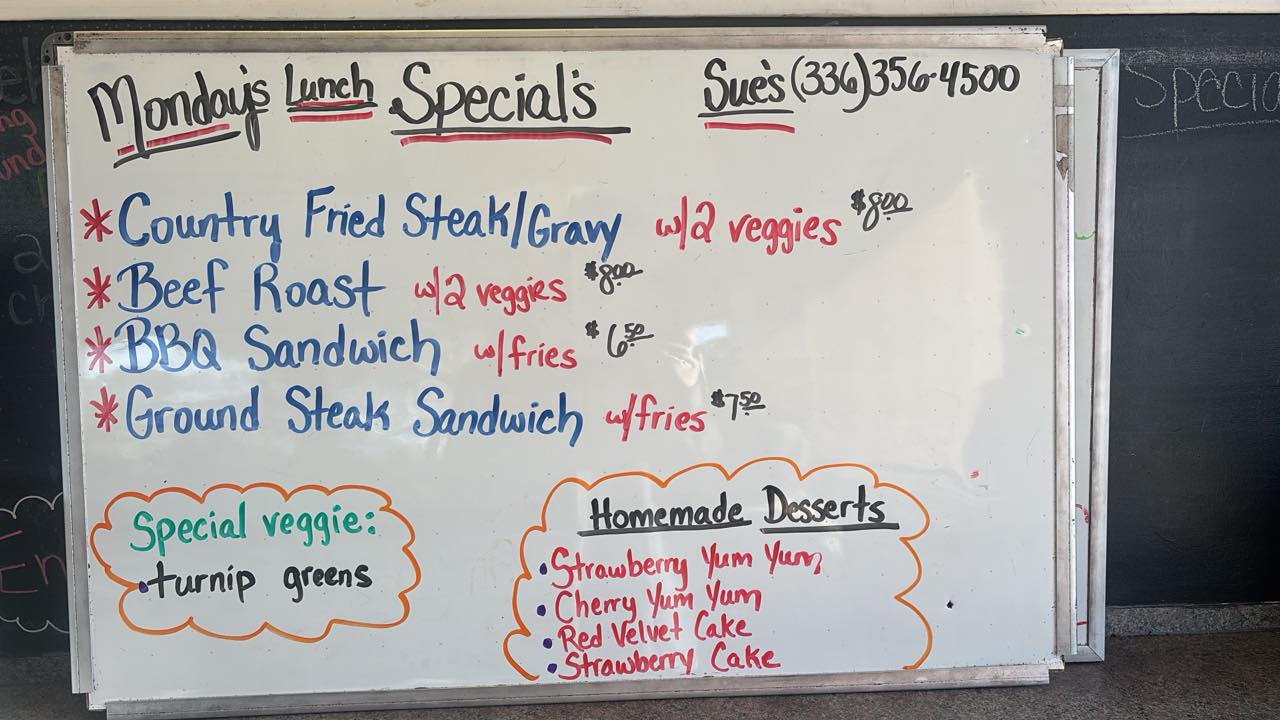 Monday's Lunch Special's
Sue's (336)356-4500
* Country Fried Steak/Gravy w/2 veggies $8.00
* Beef Roast w/2 veggies $8.00
* BBQ Sandwich w/fries $6.50
* Ground Steak Sandwich w/fries $7.50
Special veggie:
• turnip greens
Homemade Desserts
• Strawberry Yum Yum
• Cherry Yum Yum
• Red Velvet Cake
• Strawberry Cake